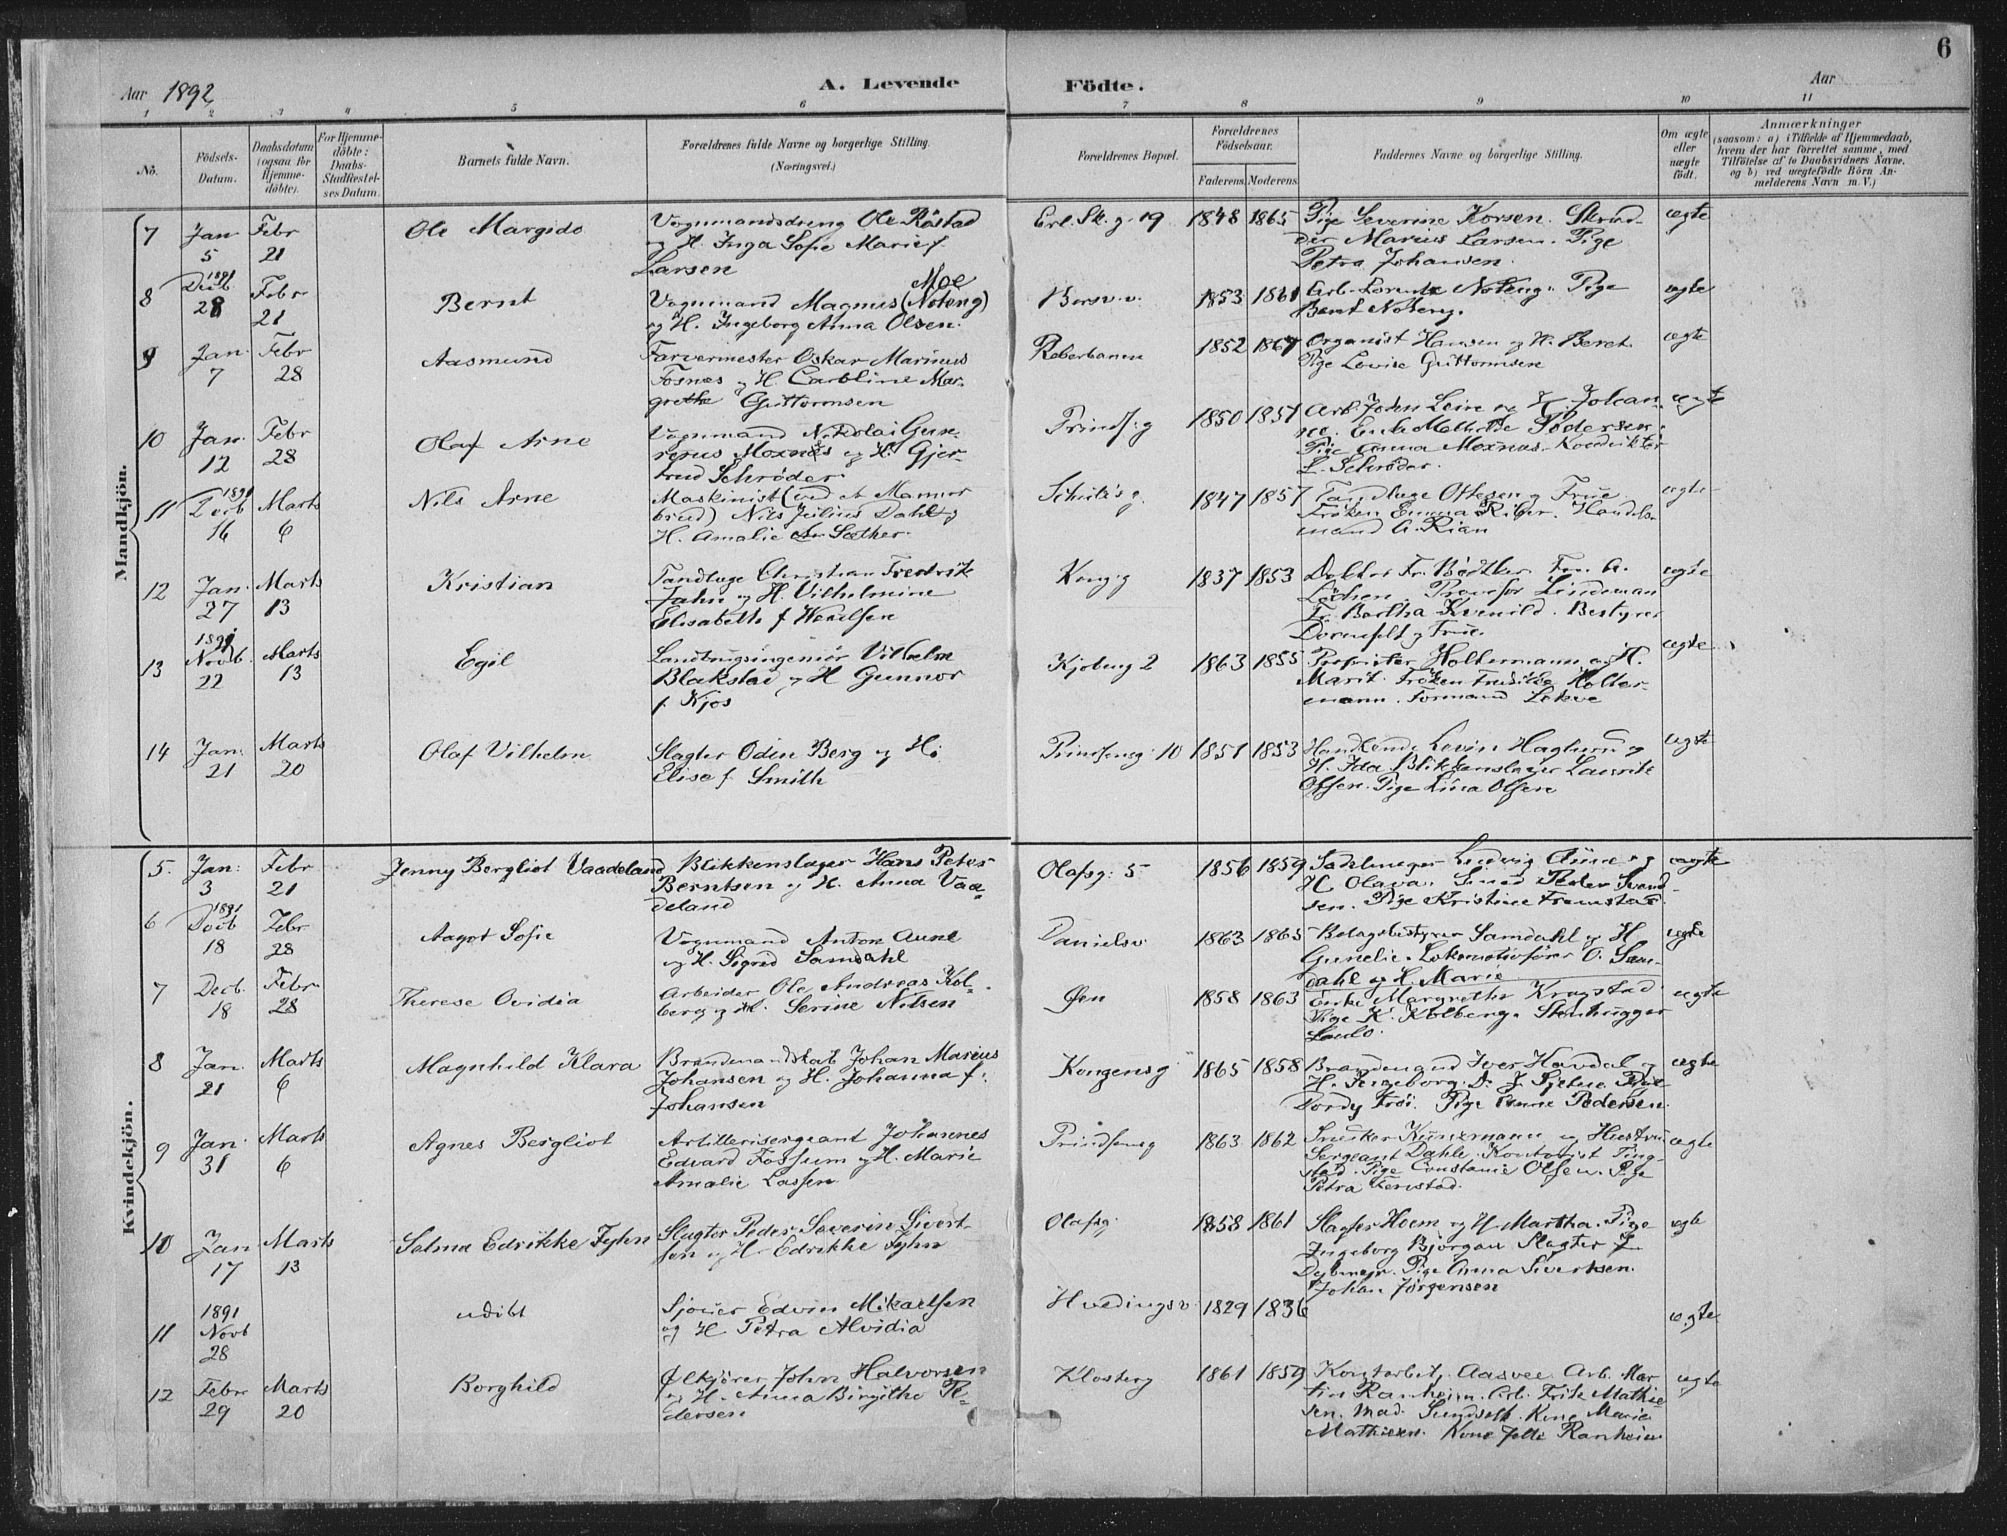 6
Aar 1892
A. Levende
Födte.
Aar
1 2 3 4 5 6 7 8 9 10 11
No.
Födsels-Datum.
Daabsdatum (ogsaa for Hjemme-döbte).
For Hjemme-döbte: Daabs-Stadfæstel-ses Datum.
Barnets fulde Navn.
Forældrenes fulde Navne og borgerlige Stilling. (Næringsvei.)
Forældrenes Bopæl.
Forældrenes Födselsaar.
Faderens. Moderens.
Faddernes Navne og borgerlige Stilling.
Om ægte eller uægte födt.
Anmærkninger
(saasom: a) i Tilfælde af Hjemmedaab, hvem der har forrettet samme, med Tilföielse af to Daabsvidners Navne, og b) ved uægtefödte Börn An-melderens Navn m. V.)
Mandkjön.
7 Jan 5 Febr 21 Ole Margido
Vognmandsdreng Ole Röstad
og H. Inga Sofie Marie f.
Larsen
Erl. Sk. g. 19 1848 1865
Pige Severine Korsen. Skræd-
der Marius Larsen. Pige
Petra Johansen.
ægte
8 1891 Decb. 28 Febr 21 Bernt
Moe
Vognmand Magnus (Noteng)
og H. Ingeborg Anna Olsen.
1853 1861
Arb. Noteng. Pige
Berit Noteng.
ægte
9 Jan 7 Febr 28 Aasmund
Farvermester Oskar Marinus
Fosnæs og H. Caroline Mar-
grethe Guttormsen
Reberbanen 1852 1867
Organist Hansen og H. Beret.
Pige Lovise Guttormsen
ægte
10 Jan. 12 Febr 28 Olaf Arne
Vognmand Nikolai Gun-
Moxnæs og H. Gjer-
trud Schrøder
Prinds. g 1850 1851
Arb. John Lein og H. Johan-
ne. Enke Pedersen.
Pige Anna Moxnæs.
L. Schrøder.
ægte
11 1891 Decb 16 Marts 6 Nils Arne
Maskinist (ved et
brud) Nils Julius Dahl og
H. Amalie Sæther.
Schultz g. 1847 1857
Tandlæge Ottesen og Frue.
Frøken Emma Handels-
mand A. Rian
ægte
12 Jan. 27 Marts 13 Kristian
Tandlæge Christian Fredrik
Jahn og H. Vilhelmine
Elisabeth f
Kong. g 1837 1853
Doktor Fr. Bødtker. Fru A.
Lindeman
Fr. Bertha Kvenild. Bestyrer
Dorenfeldt og Frue.
ægte
13 1891 Novb. 22 Marts 13 Egil
Landbrugsingeniør Vilhelm
Blakstad og H Gunnor
f. Kjos
1863 1855
Proprietær Holtermann og H.
Marit. Frøken Fredrikke Holter-
mann. Formand
ægte
14 Jan. 21 Marts 20 Olaf Vilhelm
Slagter Odin Berg og H.
Elise f. Smith
Prindsensg. 10 1851 1853
Handlende Levin og
H. Ida. Blikkenslager Lauritz
Olsen. Pige Lina Olsen
ægte
Kvindekjön.
5. Jan: 3 Febr 21 Jenny Bergliot Vaadeland
Blikkenslager Hans Peter
Berntsen og H. Anna Vaa-
deland
Olafsg. 5 1856 1859
Sadelmager Ludvig Aune og
H. Olava. Smed Peder Svend-
sen. Pige Kristine
ægte
6 1891 Decb 18 Febr 28 Aagot Sofie
Vognmand Anton Aune
og H. Sigrid Samdahl
Danielsv. 1863 1865
Bolagsbestyrer Samdahl og H
Gunelie. Lokomotivfører O. Sam-
dahl og H. Marie
ægte
7 Decb. 18 Febr 28 Therese Ovidia
Arbeider Ole Andreas Kol-
berg og H. Serine Nilsen
Øen 1858 1863
Enke Margrethe Krogstad
Pige K. Kolberg. Stenhugger
ægte
8 Jan. 21 Marts 6 Magnhild Klara
Brandmandskab Johan Marius
Johansen og H. Johanna f.
Johansen
Kongensg 1865 1858
Brandmand Iver Havdal og
H. Ingeborg.
Pige Anne Pedersen.
ægte
9 Jan. 31 Marts 6 Agnes Bergliot
Artillerisergeant Johannes
Edvard Fossum og H. Marie
Amalie Lassen
Prindsensg 1863 1862
Snedker Kunzmann og Hustru
Sergeant Dahle. Kontorist Ting-
stad. Pige Constanse Olsen. Pige
Petra
ægte
10 Jan 17 Marts 13 Selma Edrikke Fyhn
Slagter Peder Severin Sivert-
sen og H. Edrikke Fyhn
Olafsg. 1858 1861
Slagter Hoem og H Martha. Pige
Ingeborg Bjørgan. Slagter
Pige Anna Sivertsen.
Johan Jørgensen
ægte
11 1891 Novb 28 udöbt
Sjouer Edvin Mikaelsen
og H Petra Alvidia
Hvedingsv. 1829 1836
ægte
12 Febr 29 Marts 20 Borghild
Ølkjører John Halvorsen
og H. Anna Birgithe P-
edersen
Klosterg 1861 1859
Aasvee. Arb. Mar-
tin Ranheim. Arb. Fritz Mathie-
sen. Mad. Sundseth. Kone Marie
Mathiesen. Kone Ranheim.
ægte